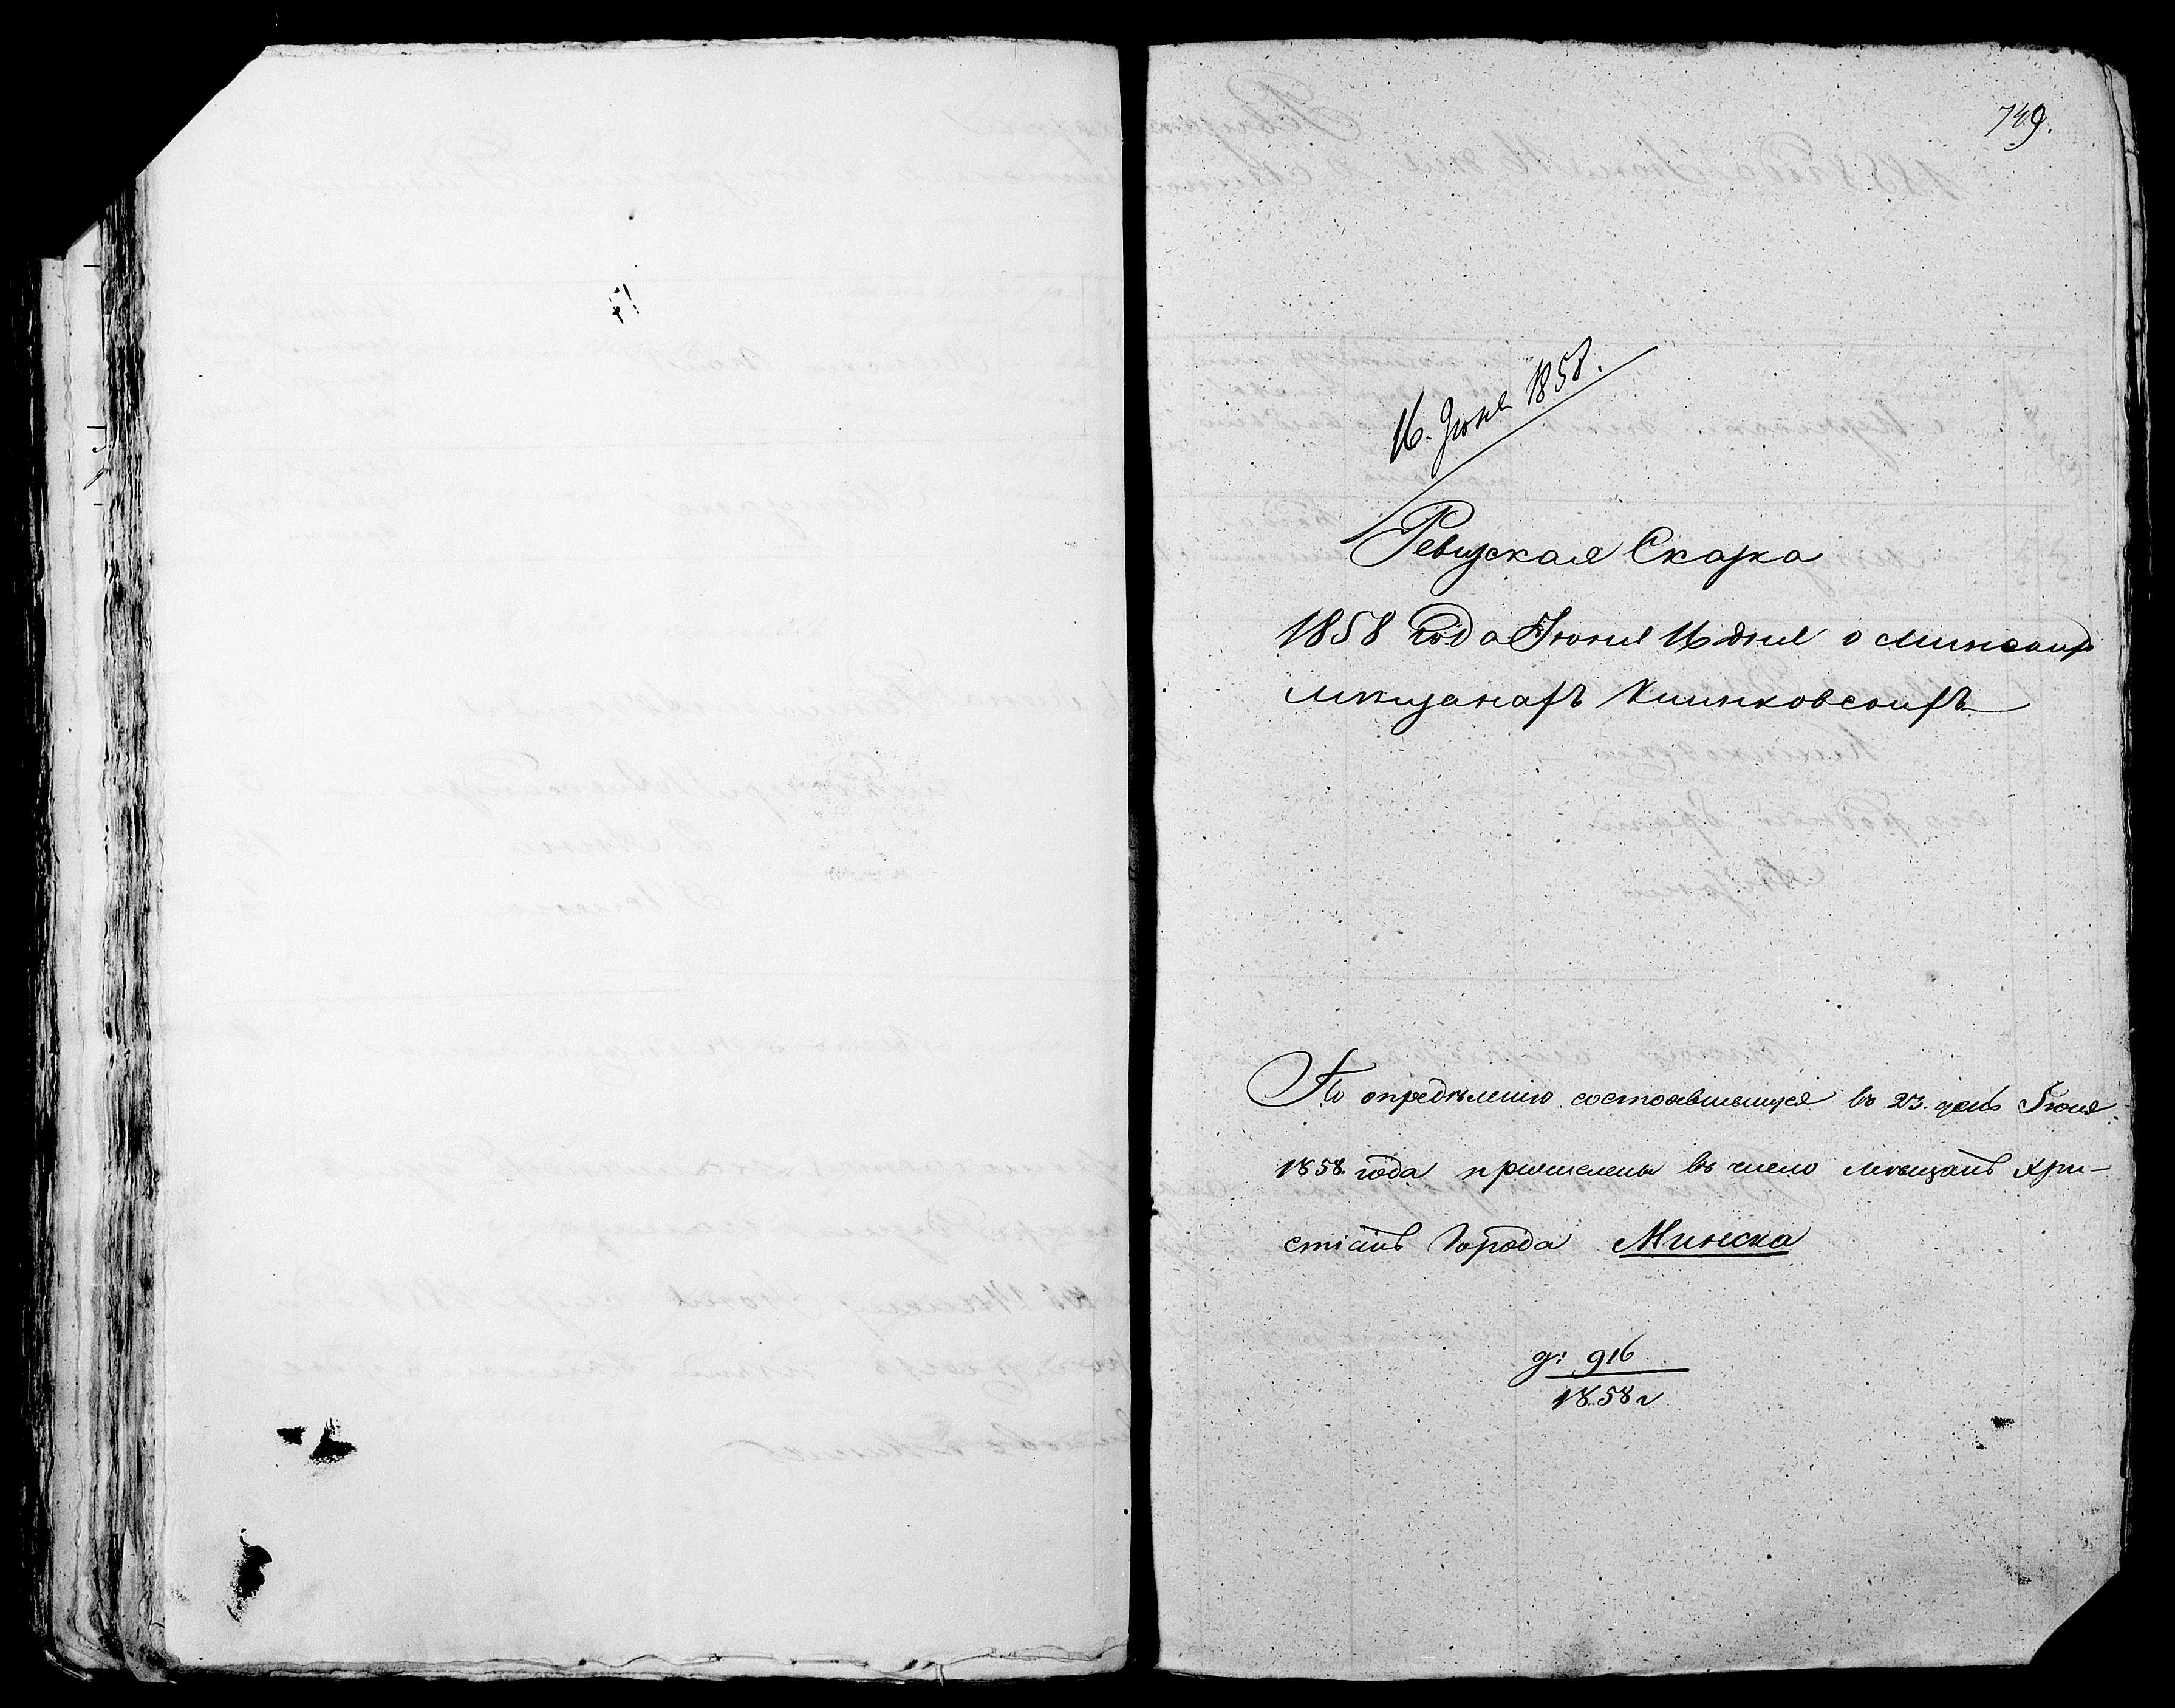 749.
16. Июня 1858.
Ревизская Сказка
1858 года Июня 16 дня о минскихъ
мѣщанахъ Климковскихъ
По опредѣленію состоявшемуся въ 23. день Іюня
1858. года причислены въ число мѣщанъ хри-
стіанъ города Минска
д: 916
1858 г